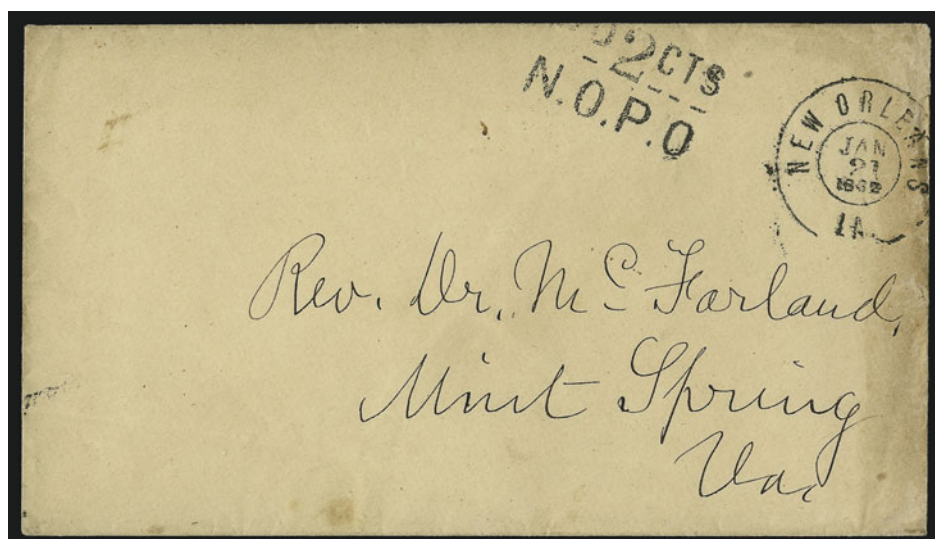 D 2 CTS
N.O.P.O
NEW ORLEANS
JAN
21
1862
LA
Rev. Dr. McFarland,
Mint Spring
Va,